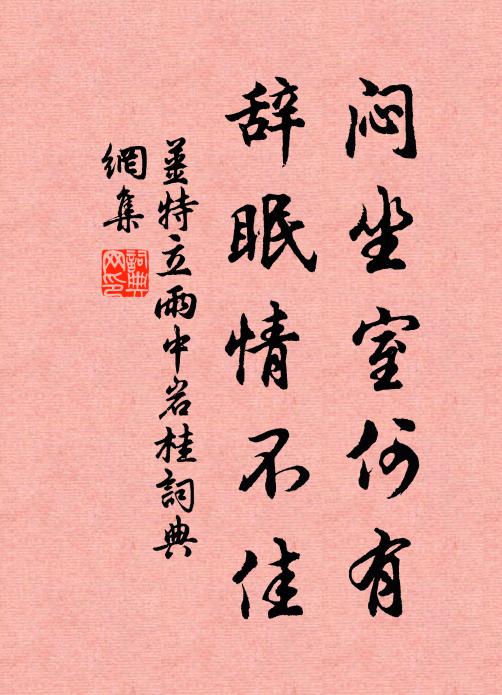 闷坐室何有
辞眠情不佳
姜特立雨中岩桂詞典
網集
詞典
网印